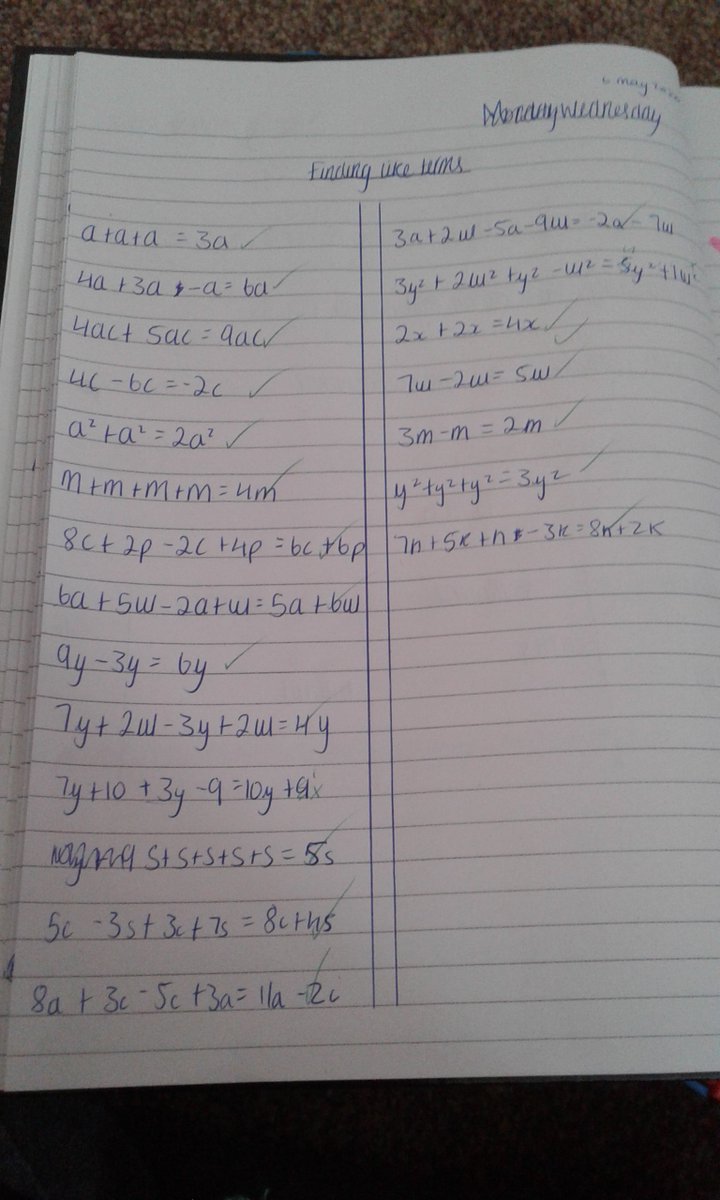 6 may
Wednesday
Finding like terms
a+a+a = 3a
4a + 3a - a = 6a
4ac + 5ac = 9ac
4c - 6c = -2c
a² + a² = 2a²
m+m+m+m = 4m
8c + 2p - 2c + 4p = 6c + 6p
6a + 5w - 2a + w = 5a + 6w
9y - 3y = 6y
7y + 2w - 3y + 2w = 4y
7y + 10 + 3y - 9 = 10y + 9
s+s+s+s+s = 5s
5c - 3s + 3c + 7s = 8c + 4s
8a + 3c - 5c + 3a = 11a - 2c
3a + 2w - 5a - 9w = -2a - 7w
3y² + 2w² + y² - w² = y² + 1w²
2x + 2x = 4x
7w - 2w = 5w
3m - m = 2m
y² + y² + y² = 3y²
7n + 5k + n - 3k = 8n + 2k